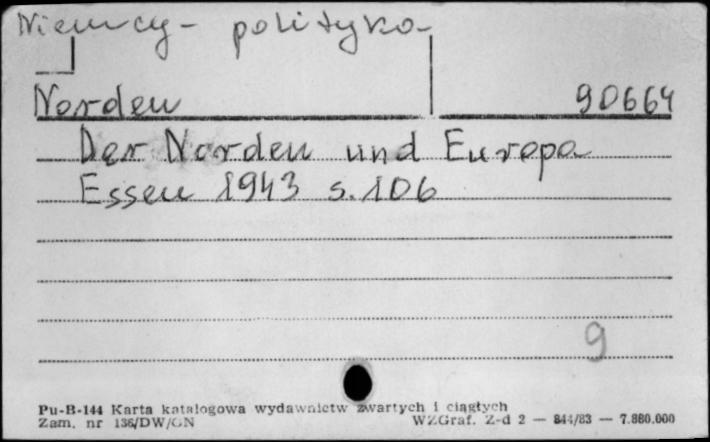 Niemcy - polityka
Norden 90664
Der Norden und Europa
Essen 1943 s. 106
9
Pu-B-144 Karta katalogowa wydawnictw zwartych i ciągłych
Zam. nr 136/DW/ON WZGraf. Z-d 2 — 844/83 — 7.880.000